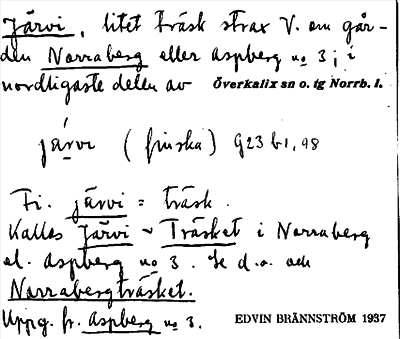 Järvi, litet träsk strax V. om går-
den Norraberg eller Aspberg no 3; i
nordligaste delen av Överkalix sn o. tg Norrb. l.
järvi (finska) G23 b1, 98
Fi. järvi = träsk.
Kallas Järvi ~ Träsket i Norraberg
el. Aspberg no 3. Se d.o. och
Norrabergträsket.
Uppg. fr. Aspberg no 3. EDVIN BRÄNNSTRÖM 1937